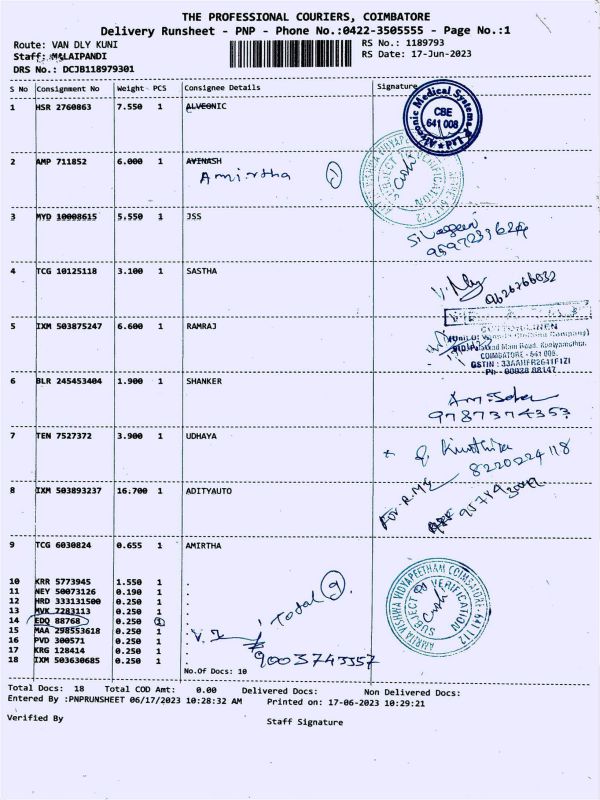 THE PROFESSIONAL COURIERS, COIMBATORE
Delivery Runsheet - PNP - Phone No.:0422-3505555 - Page No.:1
Route: VAN DLY KUNI RS No.: 1189793
Staff: MALAIPANDI RS Date: 17-Jun-2023
DRS No.: DCJB118979301
S No Consignment No Weight PCS Consignee Details Signature
1 HSR 2760863 7.550 1 ALVEONIC
Alveonic Medical Systems P Ltd
CBE
641 008
2 AMP 711852 6.000 1 AVINASH
Amirtha 1
AMRITA VISHWA VIDYAPEETHAM COIMBATORE - 641 112
SUBJECT TO VERIFICATION
3 MYD 10008615 5.550 1 JSS
9597233624
4 TCG 10125118 3.100 1 SASTHA
9626766032
5 IXM 503875247 6.600 1 RAMRAJ
COTTON LINEN
Main Road, Kuniyamuthur,
COIMBATORE - 641 008.
GSTIN : 33AAHFR2641F1ZI
Ph - 88838 88147
6 BLR 245453404 1.900 1 SHANKER
9787374353
7 TEN 7527372 3.900 1 UDHAYA
8220224118
8 IXM 503893237 16.700 1 ADITYAUTO
For. R.M.S
9 TCG 6030824 0.655 1 AMIRTHA
10 KRR 5773945 1.550 1 .
11 NEY 50073126 0.190 1 .
12 HRD 333131500 0.250 1 .
13 MVK 7283113 0.250 1 .
14 EDQ 88768 0.250 1 .
15 MAA 298553618 0.250 1 .
16 PVD 300571 0.250 1 .
17 KRG 128414 0.250 1 .
18 IXM 503630685 0.250 1 .
Total 9
9003743357
AMRITA VISHWA VIDYAPEETHAM COIMBATORE - 641 112
SUBJECT TO VERIFICATION
No.Of Docs: 10
Total Docs: 18 Total COD Amt: 0.00 Delivered Docs: Non Delivered Docs:
Entered By :PNPRUNSHEET 06/17/2023 10:28:32 AM Printed on: 17-06-2023 10:29:21
Verified By Staff Signature